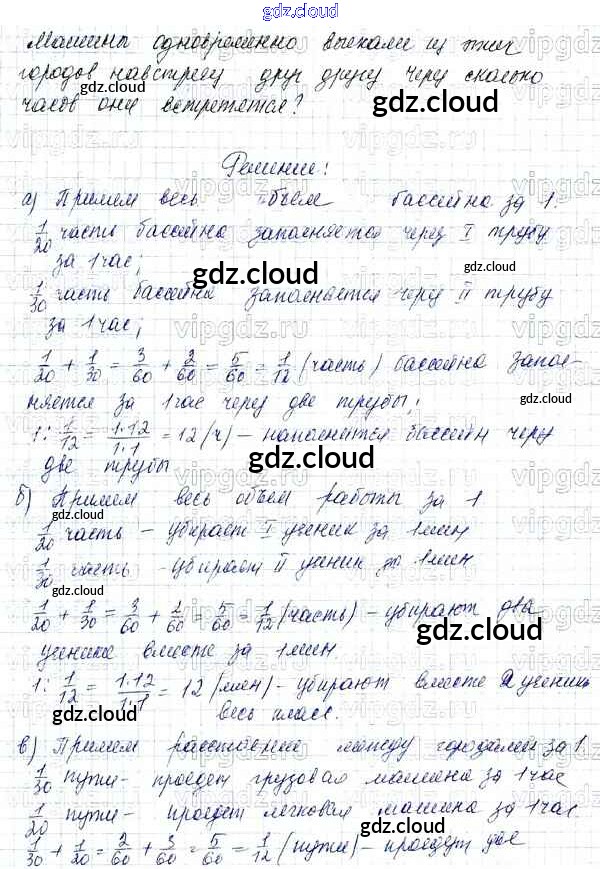 gdz.cloud
Машины одновременно выехали из этих
городов навстречу друг другу через сколько
часов они встретятся?
gdz.cloud
Решение:
а) Примем весь объем бассейна за 1.
gdz.cloud
1/20 часть бассейна заполняется через I трубу
за 1 час;
gdz.cloud
1/30 часть бассейна заполняется через II трубу
за 1 час;
1/20 + 1/30 = 3/60 + 2/60 = 5/60 = 1/12 (часть) бассейна запол-
няется за 1 час через две трубы;
1 : 1/12 = 1·12/1·1 = 12 (ч) – наполнится бассейн через
две трубы
gdz.cloud
б) Примем весь объем работы за 1
1/20 часть – убирает I ученик за 1 мин
1/30 часть – убирает II ученик за 1 мин
gdz.cloud
1/20 + 1/30 = 3/60 + 2/60 = 5/60 = 1/12 (часть) – убирают два
ученика вместе за 1 мин.
gdz.cloud
1 : 1/12 = 1·12/1·1 = 12 (мин) – убирают вместе 2 ученик
весь класс.
gdz.cloud
в) Примем расстояние между городами за 1.
1/30 пути – проедет грузовая машина за 1 час
1/20 пути – проедет легковая машина за 1 час.
gdz.cloud
1/30 + 1/20 = 2/60 + 3/60 = 5/60 = 1/12 (пути) – проедут две